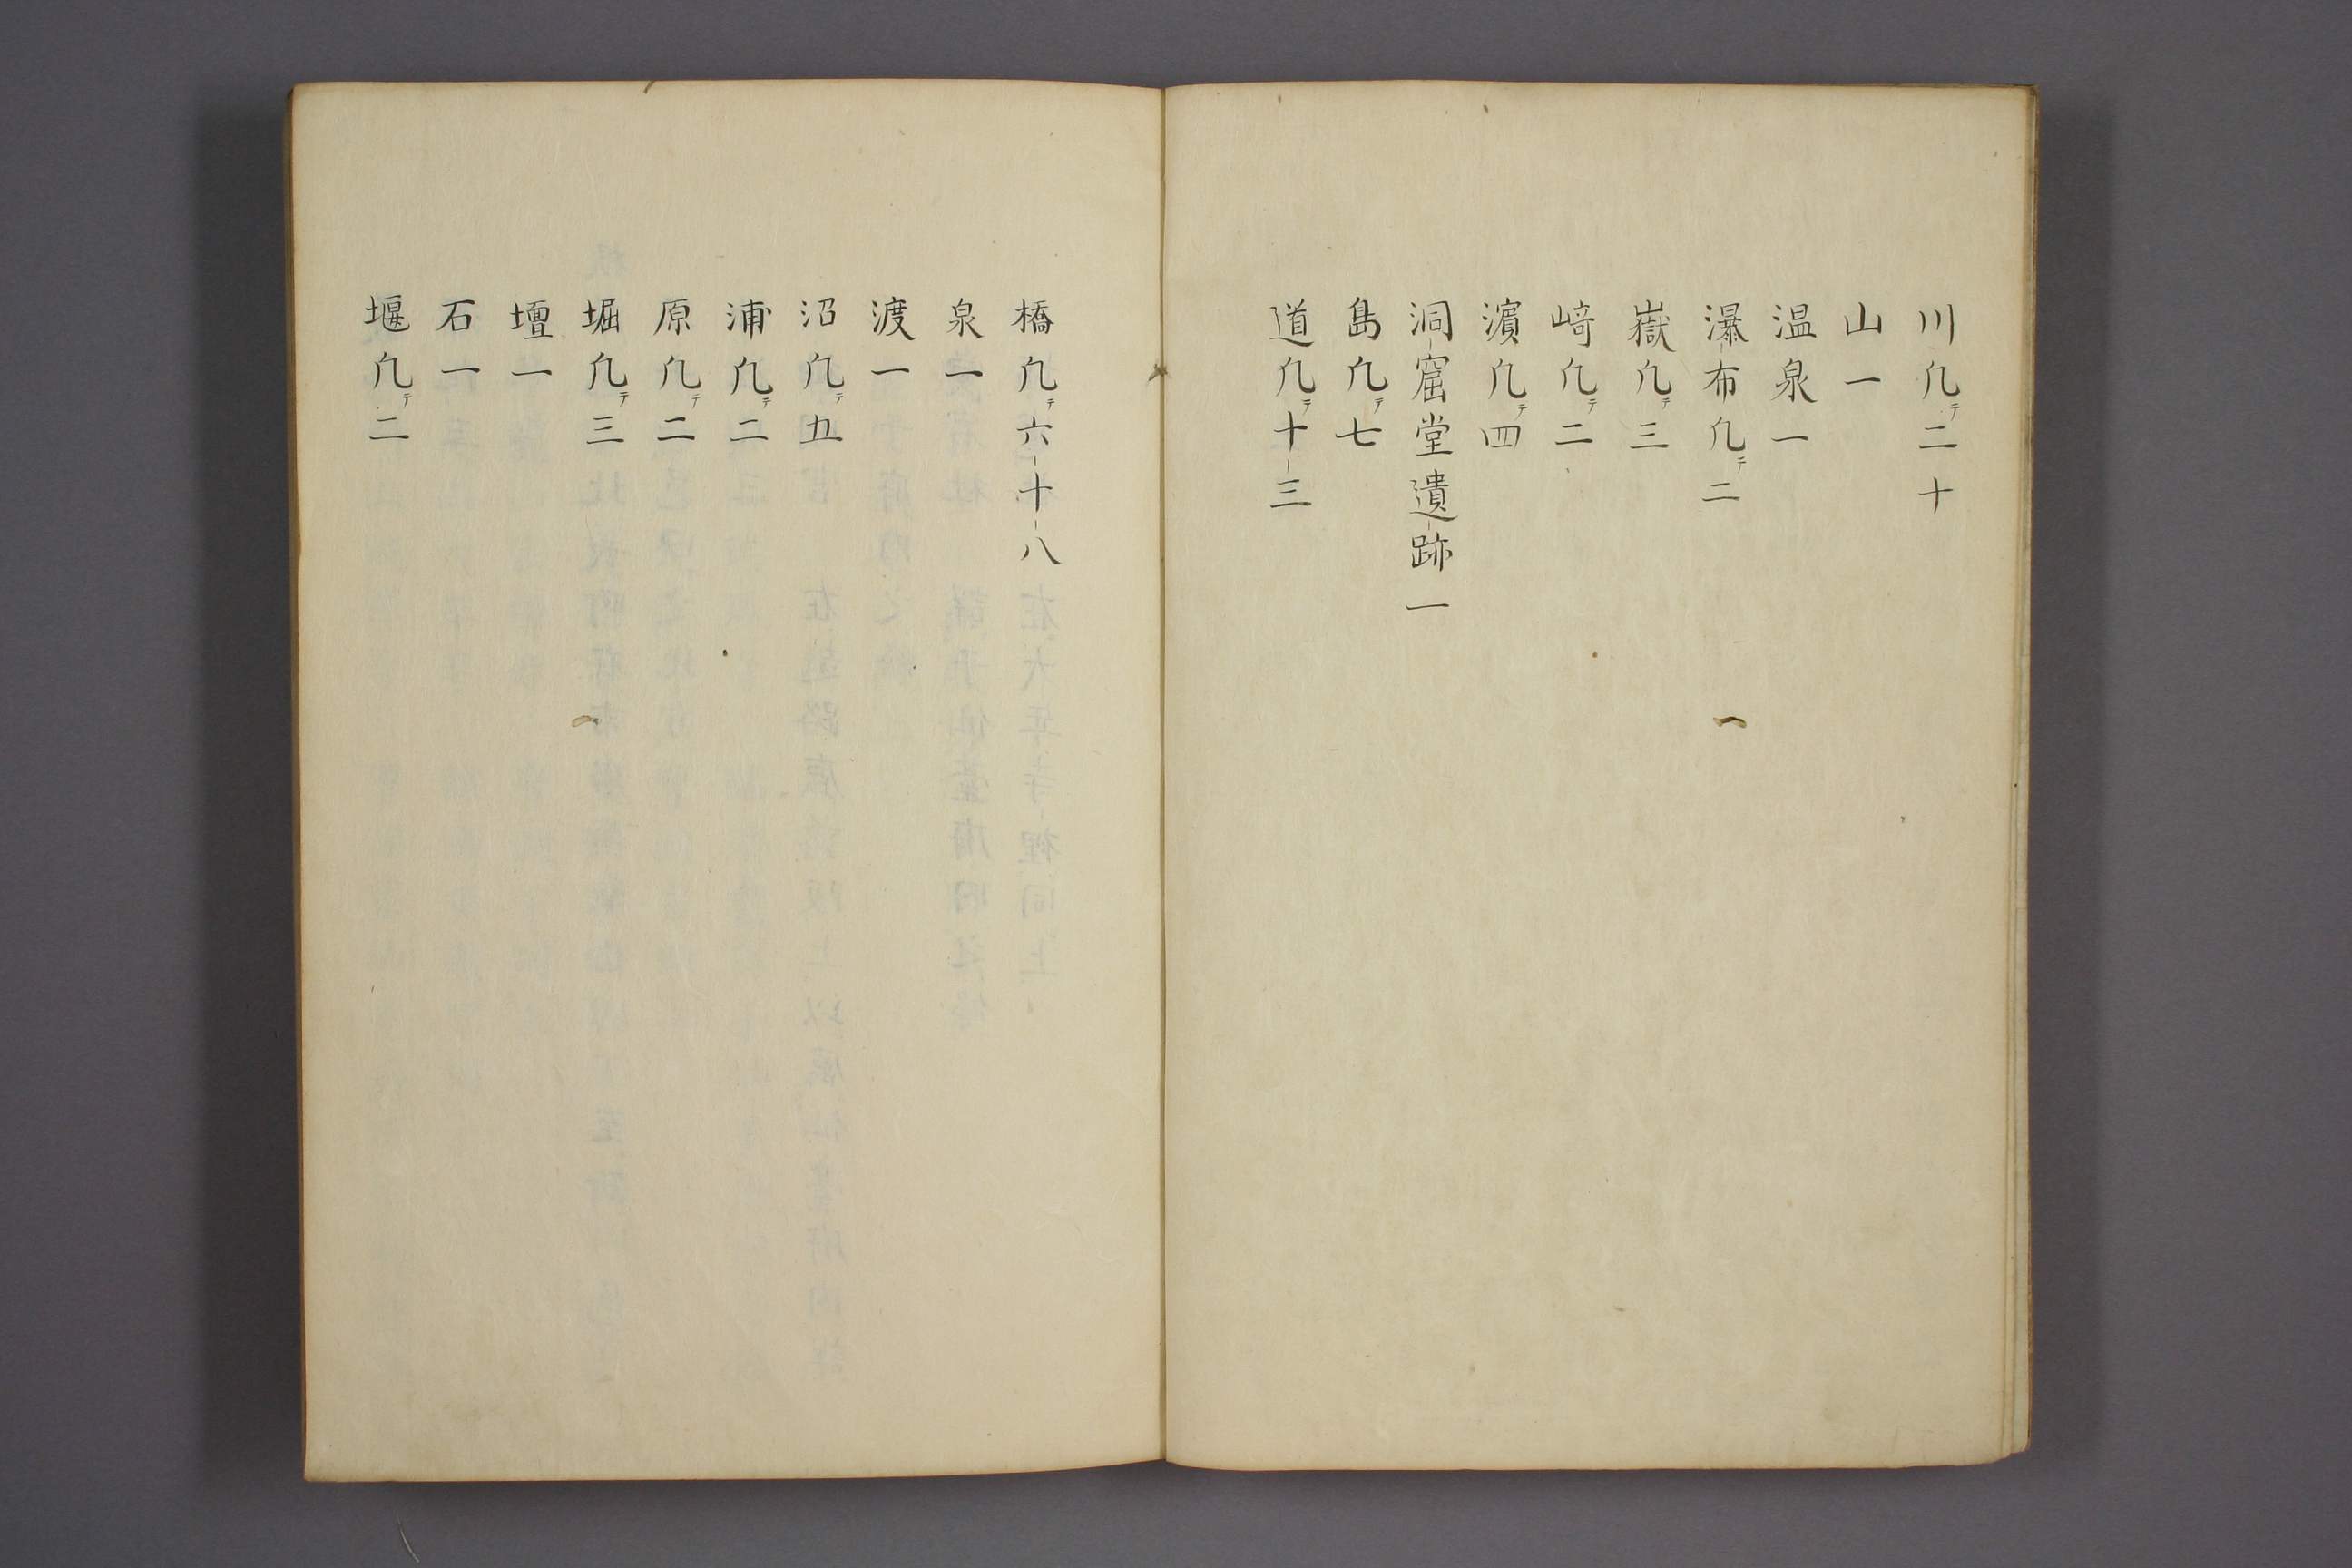 川凢テ二十
山一
温泉一
瀑布凢テ二
嶽凢テ三
﨑凢テ二
濵凢テ四
洞窟堂遺跡一
島凢テ七
道凢テ十三
橋凢テ六十八
泉一
渡一
沼凢テ五
浦凢テ二
原凢テ二
堀凢テ三
壇一
石一
堰凢テ二